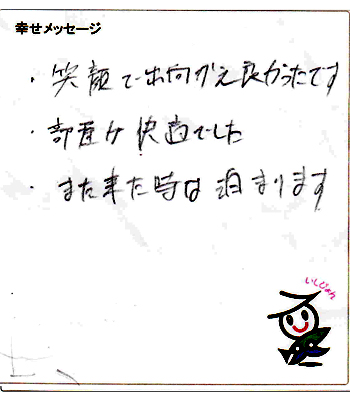 幸せメッセージ
・笑顔で出向かえ良かったです
・部屋が快適でした
・また来た時は泊まります